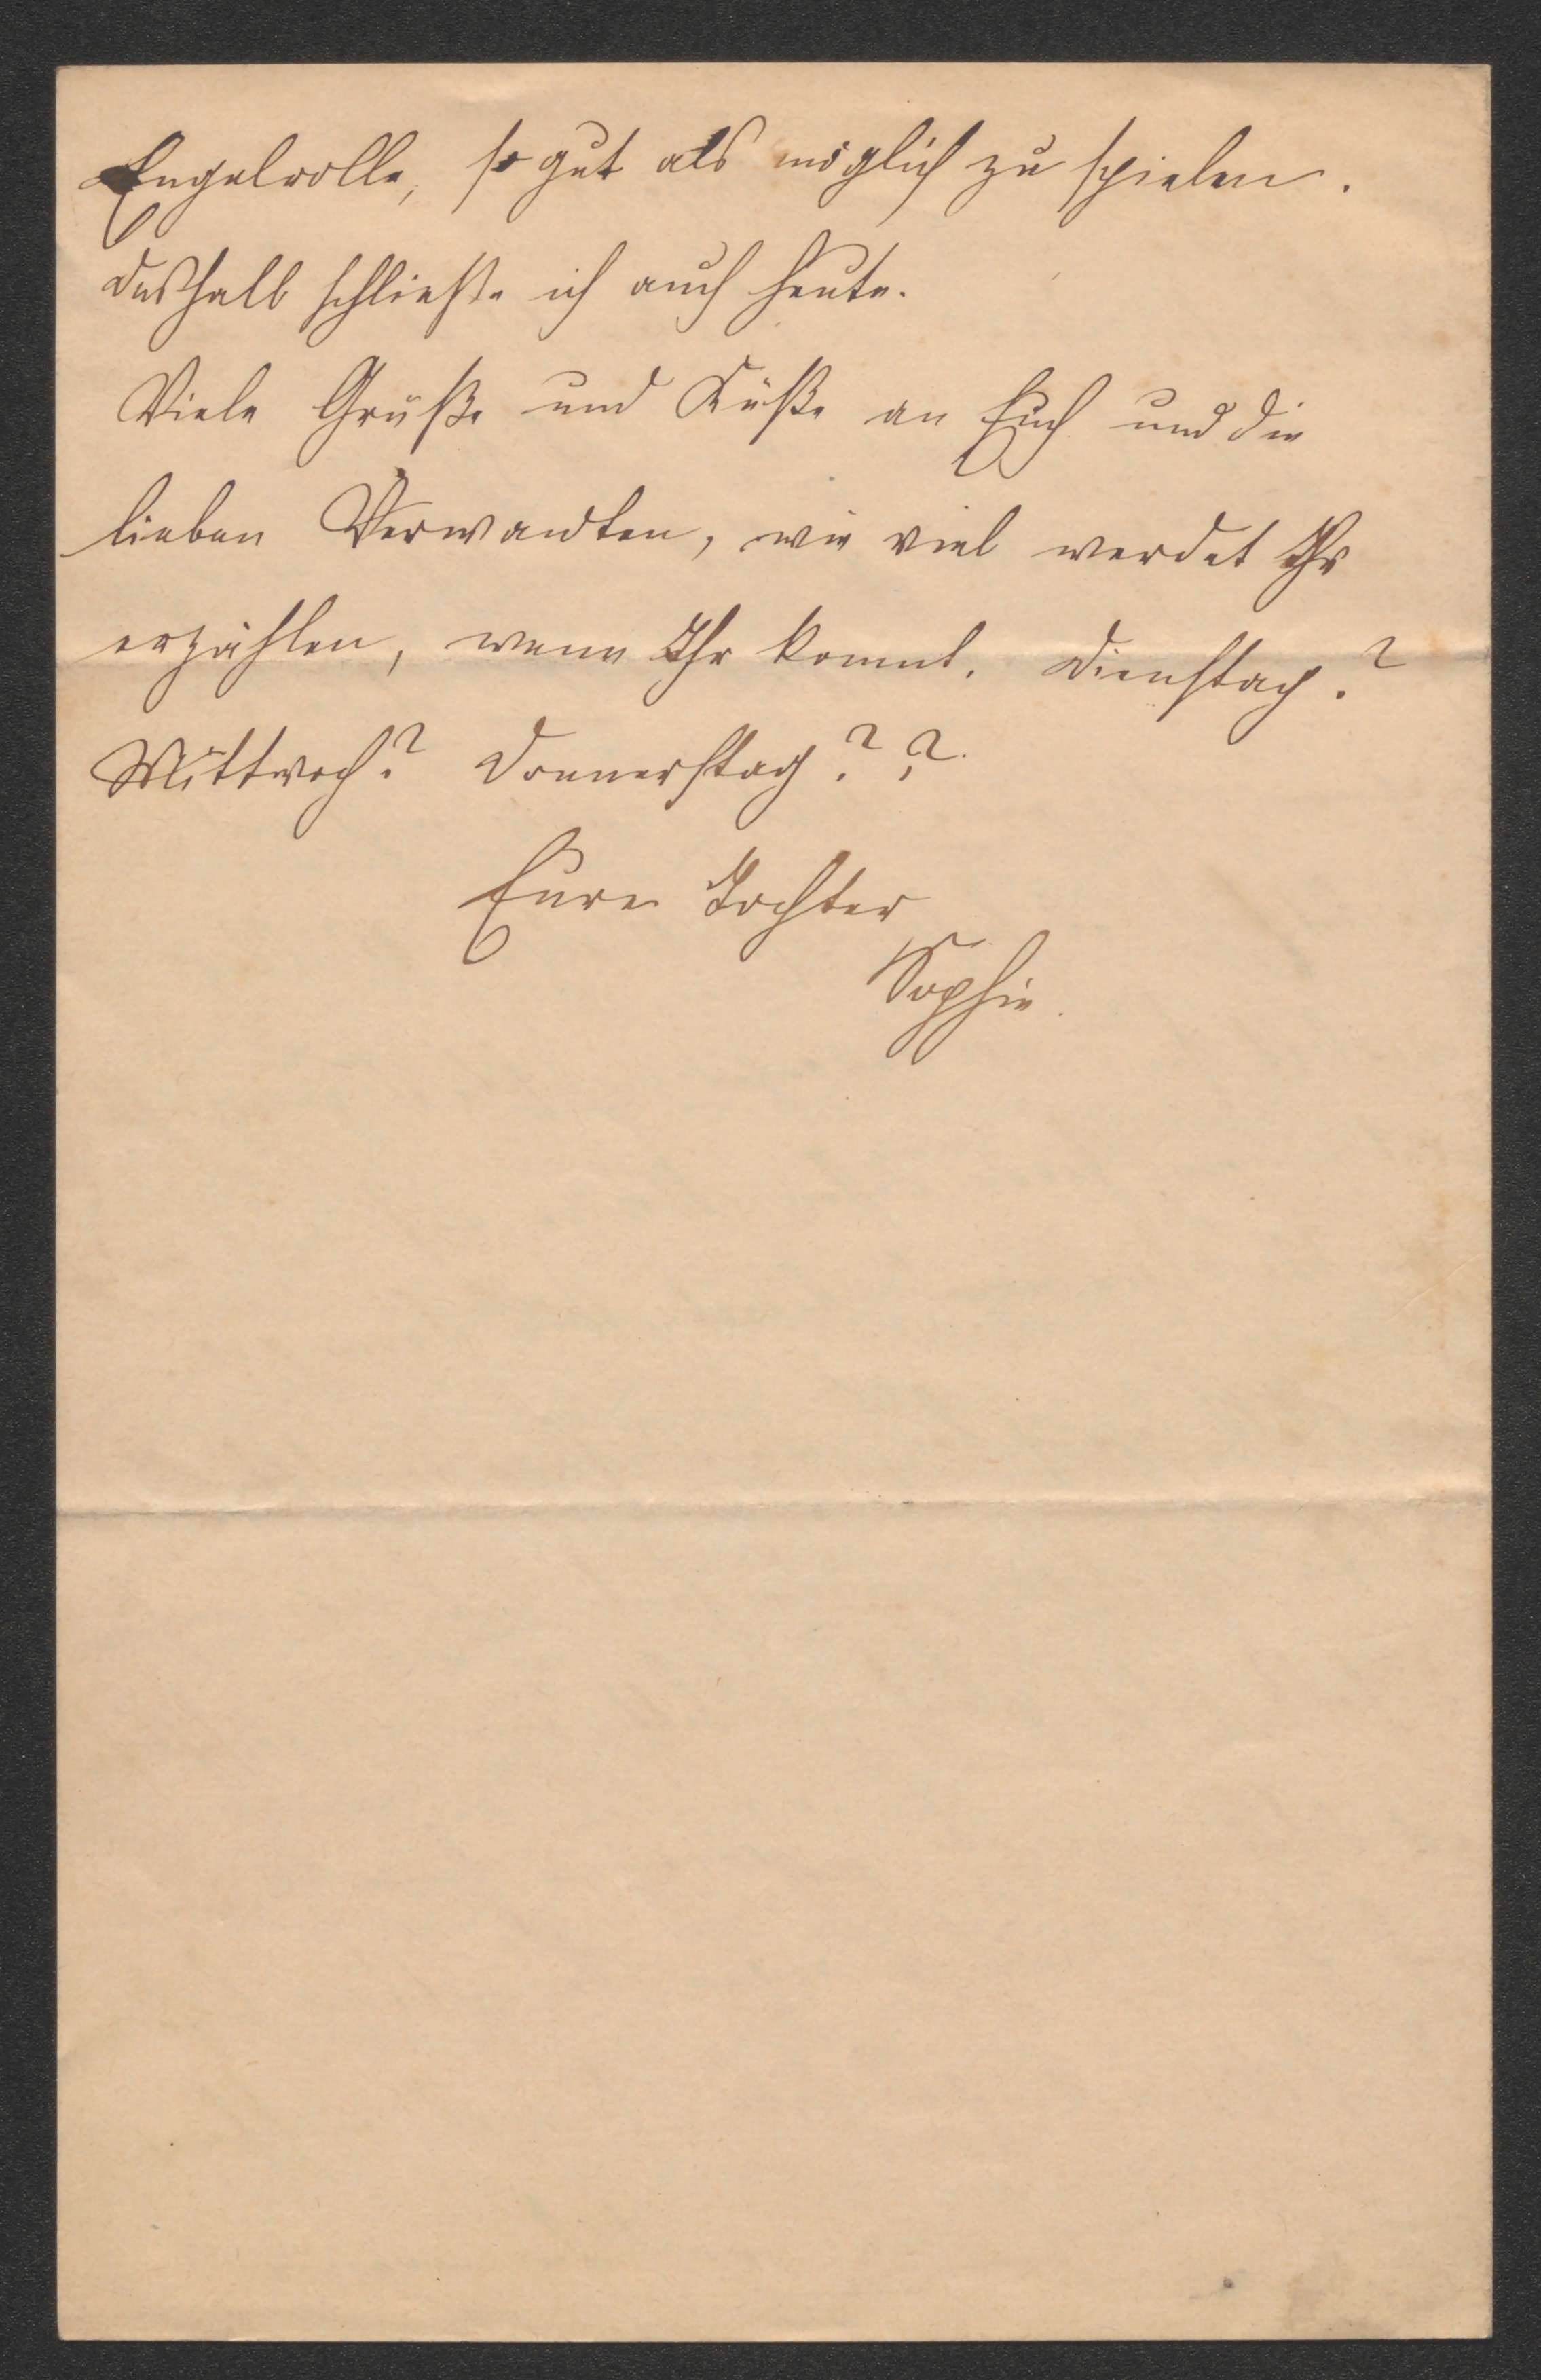 Engelrolle, so gut als möglich zu spielen.
deßhalb schließe ich auch heute.
Viele Grüße und Küße an Euch und die
lieben Verwandten, wie viel werdet Ihr
erzählen, wenn Ihr kommt. Dienstag?
Mittwoch? Donnerstag??
Eure Tochter
Sophie.